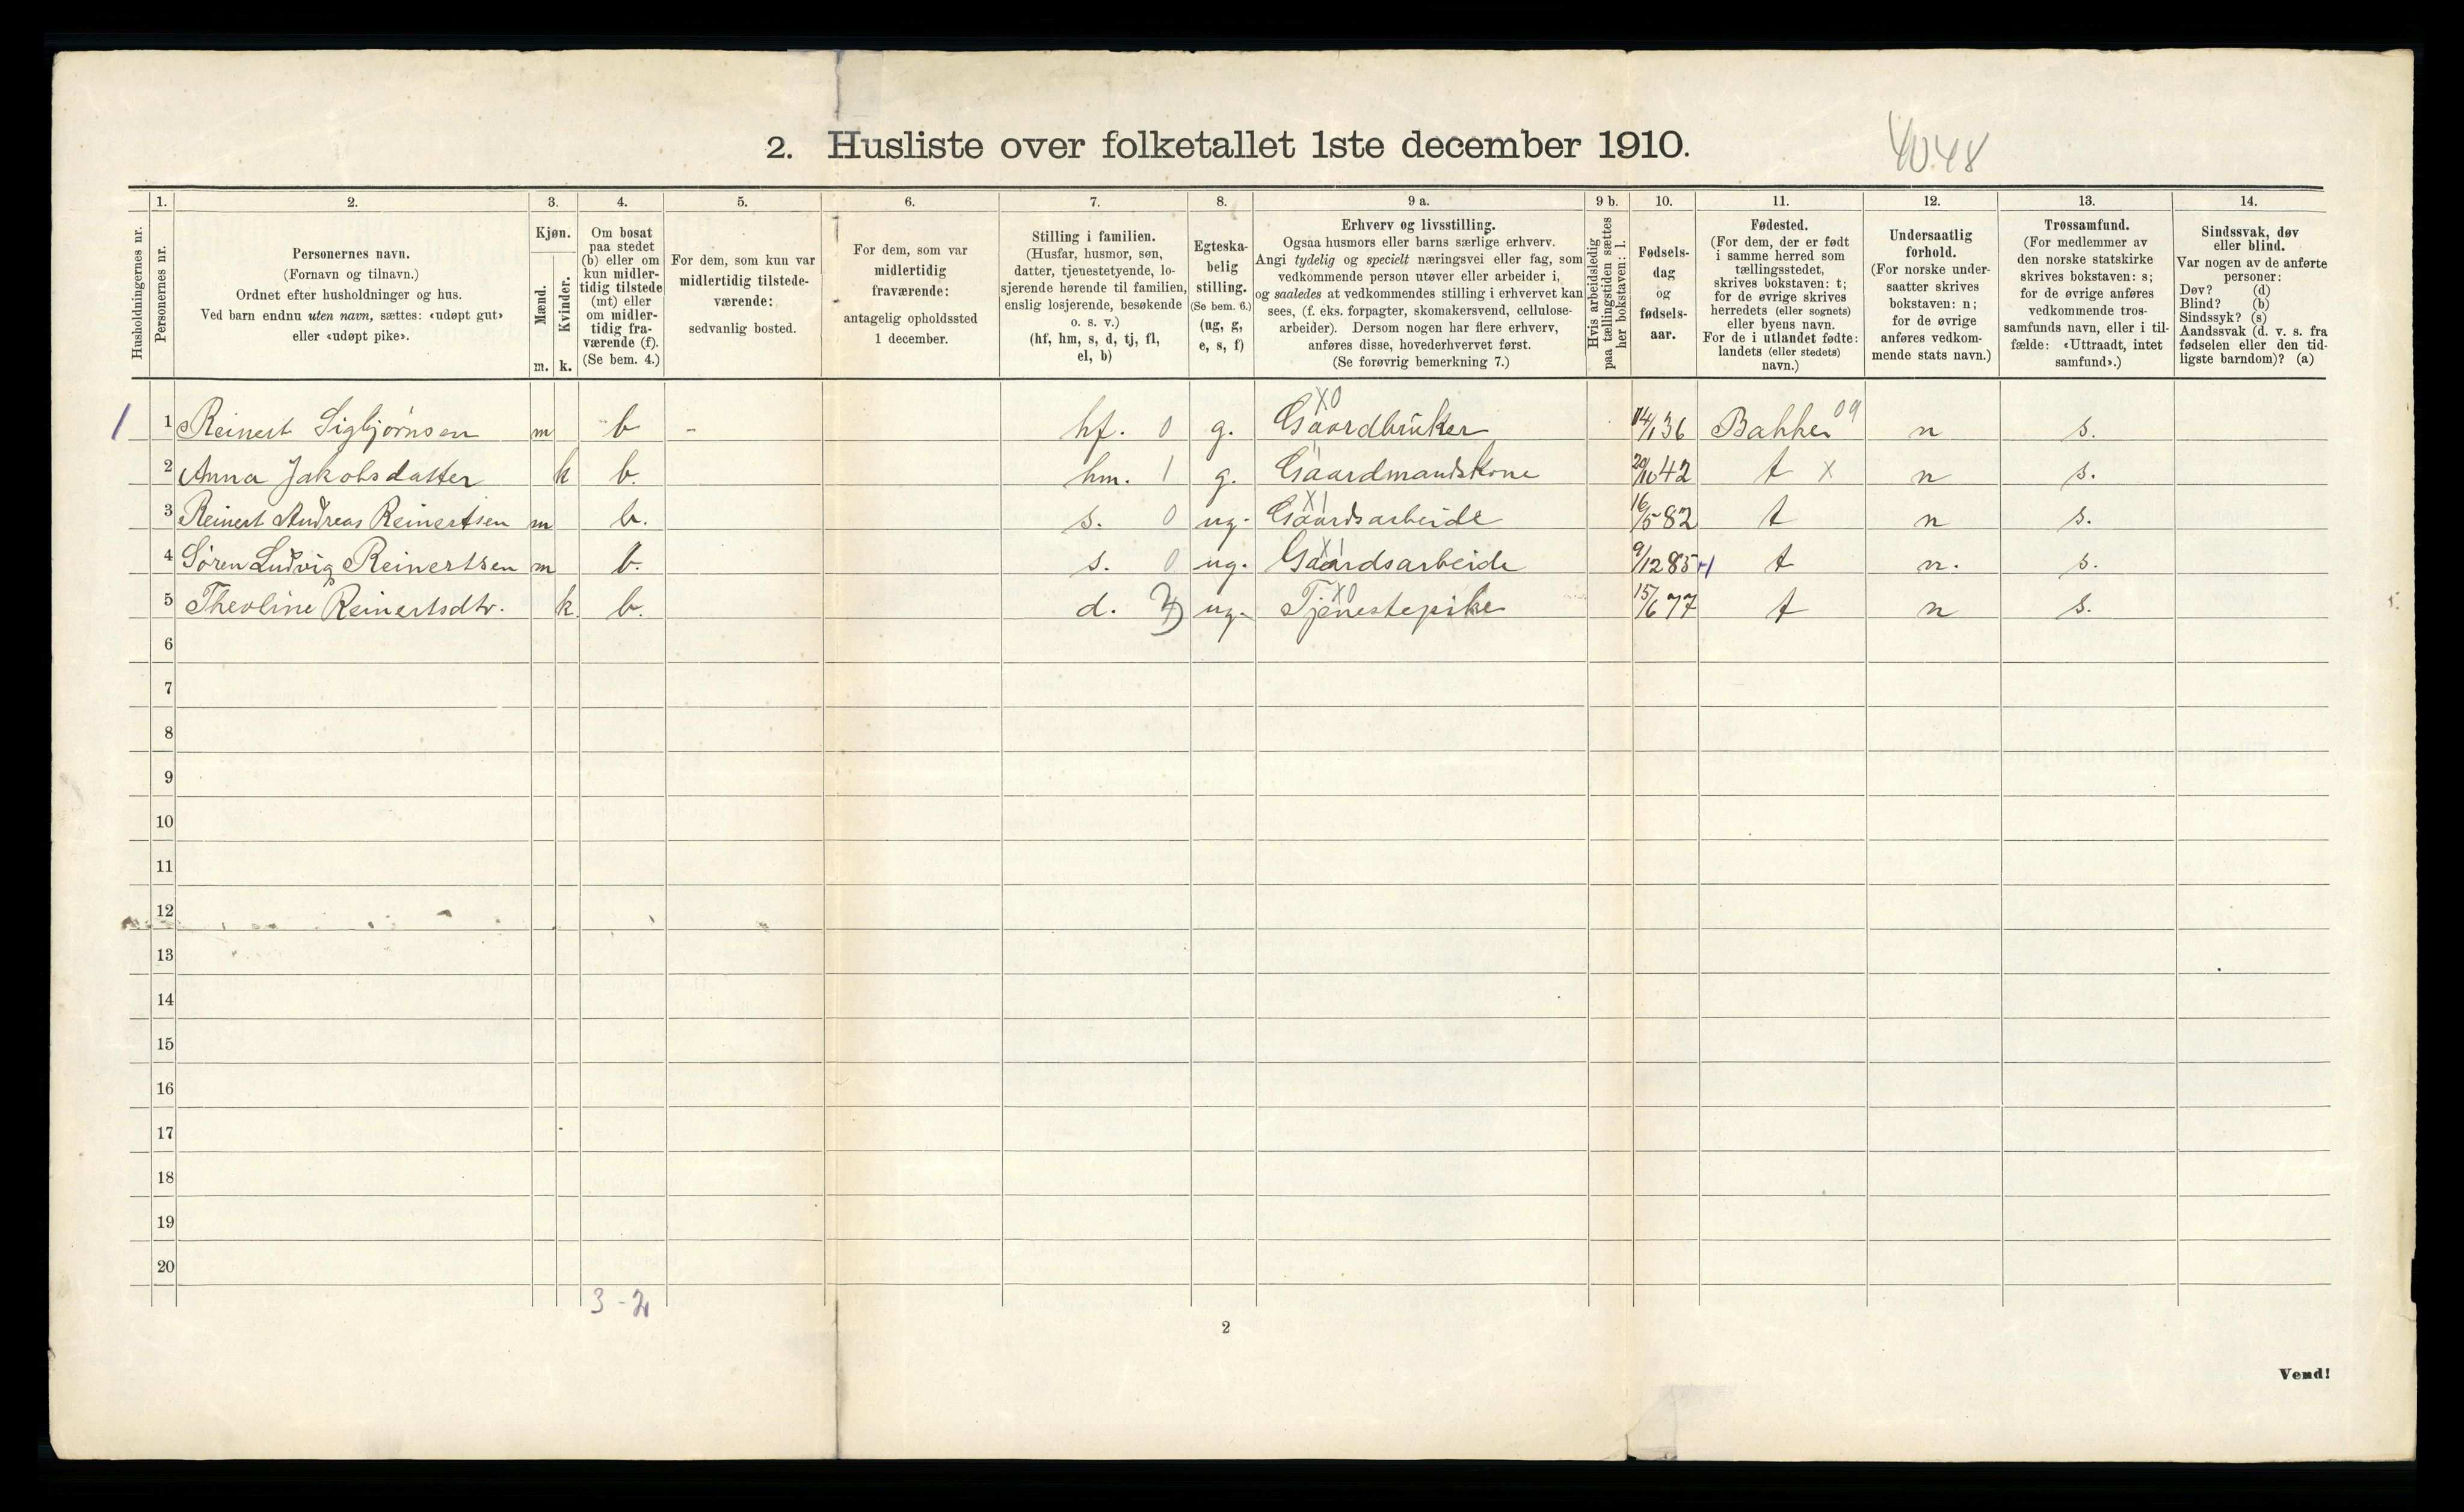 2. Husliste over folketallet 1ste december 1910.
40.48
Husholdningernes nr.
1.
Personernes nr.
2.
Personernes navn.
(Fornavn og tilnavn.)
Ordnet efter husholdninger og hus.
Ved barn endnu uten navn, sættes: «udøpt gut»
eller «udøpt pike».
3.
Kjøn.
Mænd.
Kvinder.
m. k.
4.
Om bosat
paa stedet
(b) eller om
kun midler-
tidig tilstede
(mt) eller
om midler-
tidig fra-
værende (f).
(Se bem. 4.)
5.
For dem, som kun var
midlertidig tilstede-
værende:
sedvanlig bosted.
6.
For dem, som var
midlertidig
fraværende:
antagelig opholdssted
1 december.
7.
Stilling i familien.
(Husfar, husmor, søn,
datter, tjenestetyende, lo-
sjerende hørende til familien,
enslig losjerende, besøkende
o. s. v.)
(hf, hm, s, d, tj, fl,
el, b)
8.
Egteska-
belig
stilling.
(Se bem. 6.)
(ug, g,
e, s, f)
9 a.
Erhverv og livsstilling.
Ogsaa husmors eller barns særlige erhverv.
Angi tydelig og specielt næringsvei eller fag, som
vedkommende person utøver eller arbeider i,
og saaledes at vedkommendes stilling i erhvervet kan
sees, (f. eks. forpagter, skomakersvend, cellulose-
arbeider). Dersom nogen har flere erhverv,
anføres disse, hovederhvervet først.
(Se forøvrig bemerkning 7.)
9 b.
Hvis arbeidsledig
paa tællingstiden sættes
her bokstaven: l.
10.
Fødsels-
dag
og
fødsels-
aar.
11.
Fødested.
(For dem, der er født
i samme herred som
tællingsstedet,
skrives bokstaven: t;
for de øvrige skrives
herredets (eller sognets)
eller byens navn.
For de i utlandet fødte:
landets (eller stedets)
navn.)
12.
Undersaatlig
forhold.
(For norske under-
saatter skrives
bokstaven: n;
for de øvrige
anføres vedkom-
mende stats navn.)
13.
Trossamfund.
(For medlemmer av
den norske statskirke
skrives bokstaven: s;
for de øvrige anføres
vedkommende tros-
samfunds navn, eller i til-
fælde: «Uttraadt, intet
samfund».)
14.
Sindssvak, døv
eller blind.
Var nogen av de anførte
personer:
Døv? (d)
Blind? (b)
Sindssyk? (s)
Aandssvak (d. v. s. fra
fødselen eller den tid-
ligste barndom)? (a)
X0 09
1 1 Reinert Sigbjørnsen m b - hf. 0 g. Gaardbruker 14/1 36 Bakke n s.
2 Anna Jakobsdatter k b. hm. 1 g. Gaardmandskone 20/10 42 t X n s.
X1
3 Reinert Andreas Reinertsen m b. s. 0 ug. Gaardsarbeide 16/5 82 t n s.
X1
4 Søren Ludvig Reinertsen m b. s. 0 ug. Gaardsarbeide 9/12 85 t n. s.
X0
5 Theoline Reinertsdtr. k. b. d. ug. Tjenestepike 15/6 77 t n s.
6
7
8
9
10
11
12
13
14
15
16
17
18
19
20
3 - 2
2
Vend!